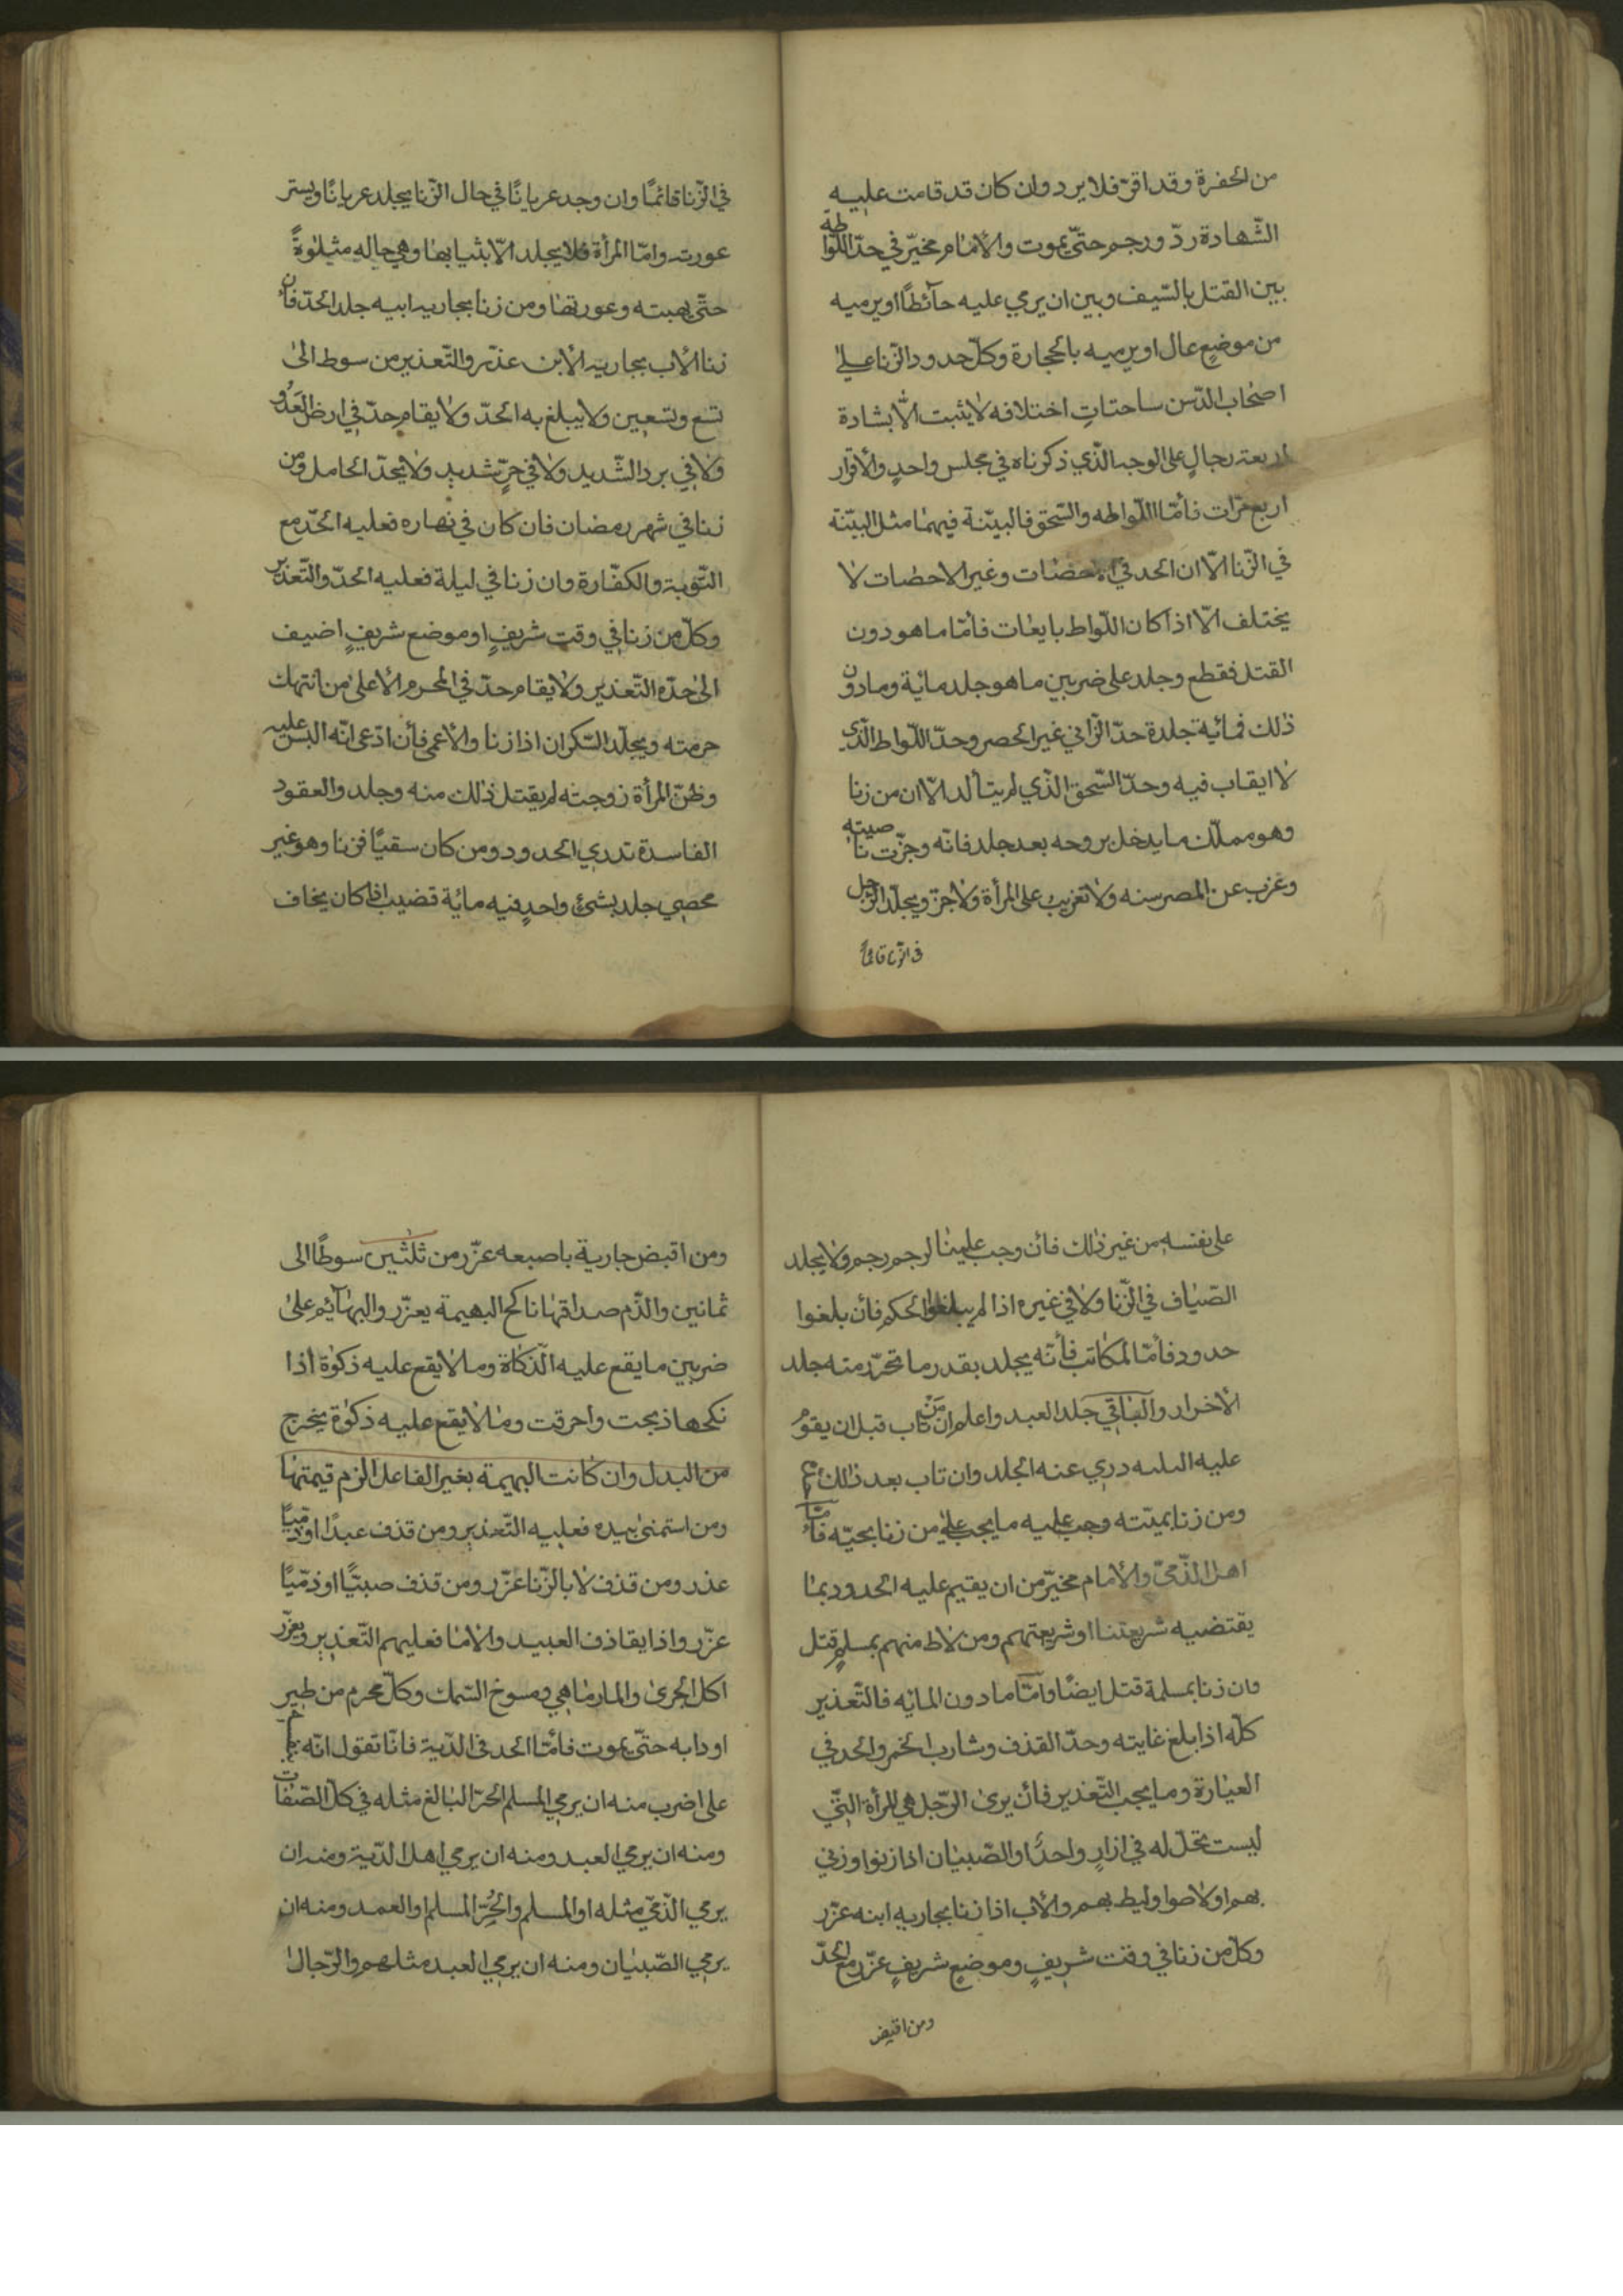 من الحفرة وقد اقرّ فلا يرد وان كان قد قامت عليه
الشّهادة ردّ ورجم حتّى يموت والأمام مخيّر في حدّ اللّواطة
بين القتل بالسّيف وبين ان يرمي عليه حآئطًا او يرميه
من موضع عال او يرميه بالحجارة وكلّ حدود الزّنا على
اصحاب اختلافه لا يثبت الّا بشادة
اربعة رجالٍ على الوجه الّذي ذكرناه في مجلس واحدٍ والأقرار
اربع مرّات فأمّا اللّواطه والسّحق فالبيّنة فيهما مثل البيّنة
في الزّنا الّا ان الحد في الاحضات وغير الاحضات لا
يختلف الّا اذا كان اللّواط بايعات فأمّا ما هو دون
القتل فقطع وجلد على ضربين ما هو جلد ماية وما دون
ذلك فمائية جلدة حدّ الزّاني غير الحصر وحدّ اللّواط الّذي
لا ايقاب فيه وحدّ السّحق الّذي لم يتألد الّا ان من زنا
وهو مملّك ما يدخل بروحه بعد جلد فانّه وجزّت ناصيته
وغرب عن المصر سنه ولا تغريب على المرأة ولا جزّ ويجلّد الرّجل
في الزّنا قائمًا
في الزّنا قائمًا وان وجد عريانًا في حال الزّنا يجلد عريانًا ويستر
عورته وامّا المرأة فلا يجلد الّا بثيابها وهي جاله مثلوةً
حتّى بهبته وعورتها ومن زنا بجاريه ابيه جلد الحدّ فأن
زنا الأب بجارية الأبن عذّر والتّعذير من سوط الى
تسع وتسعين ولا يبلغ به الحدّ ولا يقام حدّ في ارض العدُو
ولا في برد الشّديد ولا في حرٍّ شديدٍ ولا يحدّ الحامل ومن
زنا في شهر رمضان فان كان في نهاره فعليه الحدّ مع
التّوبة والكفّارة وان زنا في ليلة فعليه الحدّ والتّعذير
وكلّ من زنا في وقت شريفٍ او موضع شريفٍ اضيف
الى حدّه التّعذير ولا يقام حدّ في المحرم الا على من انتهك
حرمته ويجلّد السّكران اذا زنا والأعمى فأن ادّعى انّه البس عليه
وظنّ المرأة زوجته لم يقتل ذلك منه وجلد والعقود
الفاسدة تدري الحدود ومن كان سقيًا فزنا وهو غير
محصي جلد بشئٍ واحدٍ فيه ماية قضيب اذا كان يخاف
على نفسه من غير ذلك فان وجب علينا لرجم رجم ولا يجلد
الصّياف في الزّنا ولا في غيره اذا لم يبلغوا الحكم فأن بلغوا
حدود فأمّا المكاتب فأنّه يجلد بقدر ما تحرّر منه جلد
الأخرار والباقي جلد العبد واعلم ان من تاب قبل ان يقوم
عليه البينه دري عنه الجلد وان تاب بعد ذلك
ومن زنا بميّته وجب عليه ما يجب على من زنا بحيّه فأمّا
اهل الذّمّي والأمام مخيّر من ان يقيم عليه الحدود بما
يقتضيه شريعتنا او شريعتهم ومن لاط منهم بمسلمٍ قتل
وان زنا بمسلمة قتل ايضًا وأمّا ما دون المايّه فالتّعذير
كلّه اذا بلغ غايته وحدّ القذف وشارب الخمر والحد في
العيارة وما يجب التّعذير فأن يرى الرّجل هي المرأة الّتي
ليست تحلّ له في ازارٍ واحدًا والصّبيان اذا زنوا وزني
بهم اولاصوا وليط بهم والأب اذا زنا بجاريه ابنه عزّر
وكلّ من زنا في وقت شريفٍ وموضعٍ شريفٍ عزّر مع الحدّ
ومن اقبض
ومن اقبض جارية باصبعه عزّر من ثلثين سوطًا الى
ثمانين والذّم صداقها ناكح البهيمة يعزّر والبهآئم على
ضربين ما يقع عليه الذّكاة وما لا يقع عليه ذكوة اذا
نكحها ذبحت واحرقت وما لا يقع عليه ذكوة يخرج
من البدل وان كانت البهيمة بغير الفاعل الزم قيمتها
ومن استمنى بيده فعليه التّعذير ومن قذف عبدًا او ذمّيًا
عذر ومن قذف لا بالزّنا عزّر ومن قذف صبيًّا او ذمّيًا
عزّر واذا يقاذف العبيد والاما فعليهم التّعذير ويعزّر
اكل الجرى والمارماهي ومسوخ السّمك وكلّ محرم من طير
او دابه حتّى يموت فأمّا الحد في الدّية فانّا تقول انّه
على اضرب منه ان يرمي المسلم الحرّ البالغ مثله في كلّ الصّفات
ومنه ان يرمي العبد ومنه ان يرمي اهل الدّية ومنه ان
يرمي الذّمّي مثله او المسلم والحُرّ المسلم او العمد ومنه ان
يرمي الصّبيان ومنه ان يرمي العبد مثلهم والرّجال